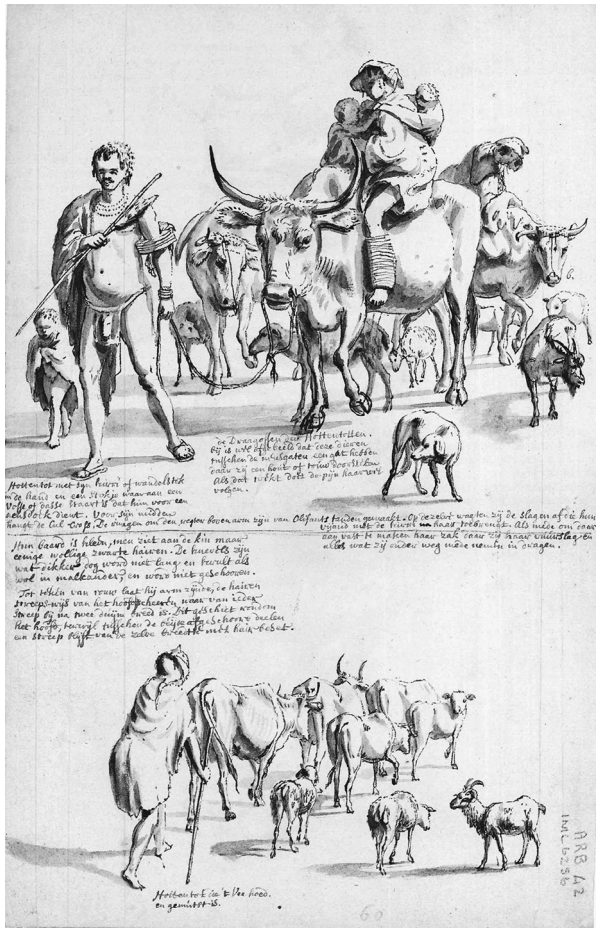 de Draagossen der Hottentotten.
bij is uitgebeeld dat deze dieren
tusschen de neusgaten een gat hebben
daar zij een hout of touw door steken
Als dat trekt doet de pijn haar
volgen.
Hottentot met syn kirri of wandelstok
in de hand en een stokje waaraan een
Vosse of dasse staart is dat hem voor een
neusdoek dient. Voor syn midden
hangt de Cul Cros. De ringen om den regter boven arm zijn van Olifants tanden gemaakt. Op dezelve vangen zij de slagen af die hun
vijand met de kirri na haar toebrengt. Als mede om daar
aan vast te maken haar zak daar zij haar vuurslag en
alles wat zij onder weg mede nemen in dragen.
Hun baard is klein, men ziet aan de kin maar
eenige wollige zwarte hairen. De knevels zijn
wat dikker dog word niet lang en krult als
wol in malkander, en word niet geschooren.
Tot teken van rouw laat hij arm zijnde, de hairen
streeps wijs van het hoofd scheeren waar van ieder
streep bij na twee duijm breed is. Dit geschiet rondom
het hoofd, terwijl tusschen de beijde afgeschoore deelen
een streep blijft van de zelve breedte met hair bezet.
Hottentot die 't Vee hoed.
en gemutst is.
60
ARB 42